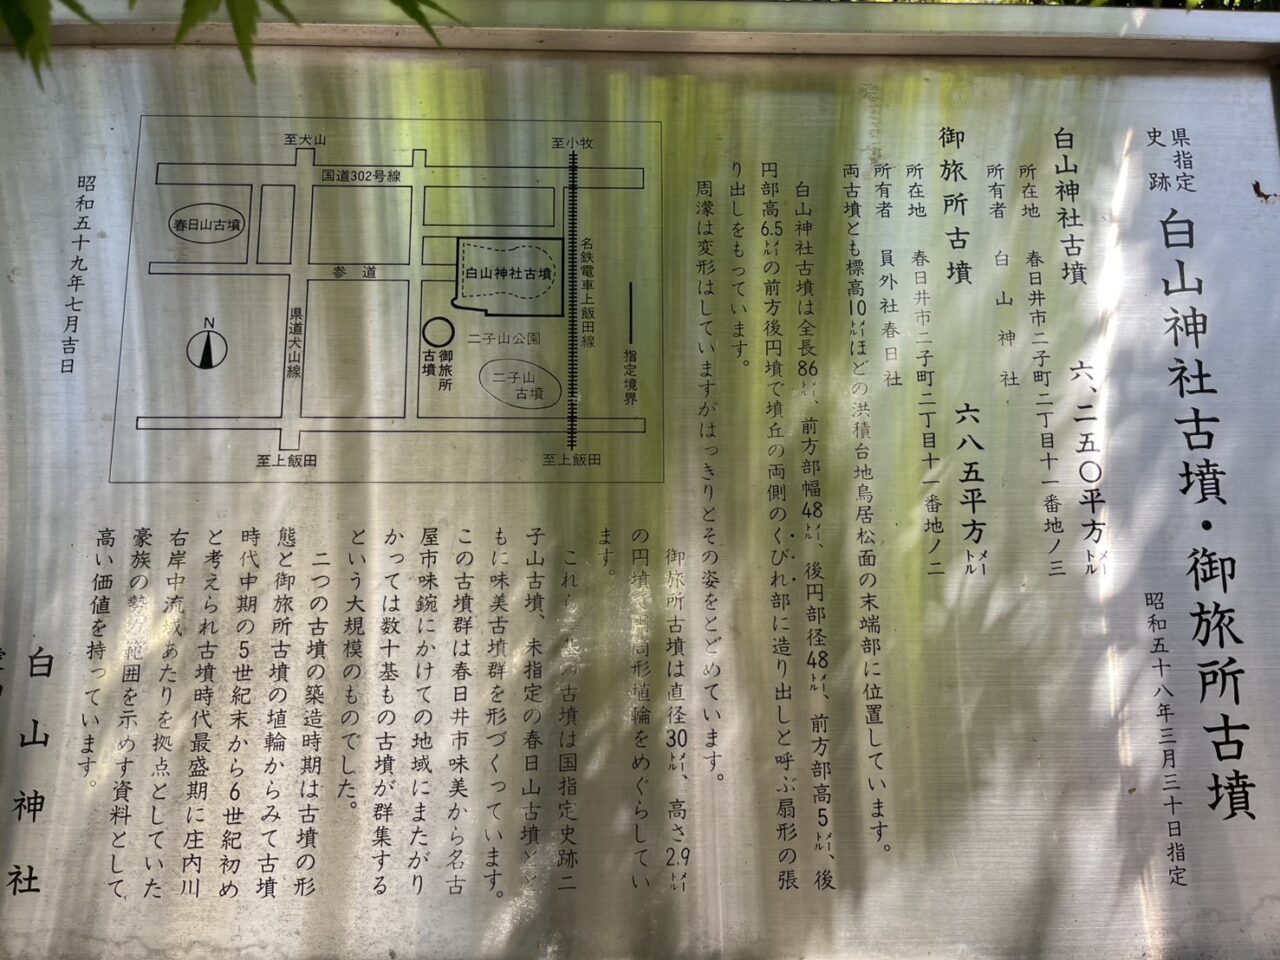 県指定
史跡
白山神社古墳・御旅所古墳
昭和五十八年三月三十日指定
白山神社古墳　六、二五〇平方㍍
所在地　春日井市二子町二丁目十一番地ノ三
所有者　白山神社
御旅所古墳　六八五平方㍍
所在地　春日井市二子町二丁目十一番地ノ二
所有者　員外社春日社
両古墳とも標高10㍍ほどの洪積台地鳥居松面の末端部に位置しています。
白山神社古墳は全長86㍍、前方部幅48㍍、後円部径48㍍、前方部高5㍍、後
円部高6.5㍍の前方後円墳で墳丘の両側のくびれ部に造り出しと呼ぶ扇形の張
り出しをもっています。
周濠は変形はしていますがはっきりとその姿をとどめています。
御旅所古墳は直径30㍍、高さ2.9㍍
の円墳で円筒形埴輪をめぐらしてい
ます。
これら 基の古墳は国指定史跡二
子山古墳、未指定の春日山古墳とと
もに味美古墳群を形づくっています。
この古墳群は春日井市味美から名古
屋市味鋺にかけての地域にまたがり
かつては数十基もの古墳が群集する
という大規模のものでした。
二つの古墳の築造時期は古墳の形
態と御旅所古墳の埴輪からみて古墳
時代中期の5世紀末から6世紀初め
と考えられ古墳時代最盛期に庄内川
右岸中流域あたりを拠点としていた
豪族の勢力範囲を示めす資料として
高い価値を持っています。
至犬山
至小牧
国道302号線
春日山古墳
参道
白山神社古墳
名鉄電車上飯田線
N
県道犬山線
御旅所
古墳
二子山公園
二子山
古墳
指定境界
至上飯田
至上飯田
昭和五十九年七月吉日
白山神社